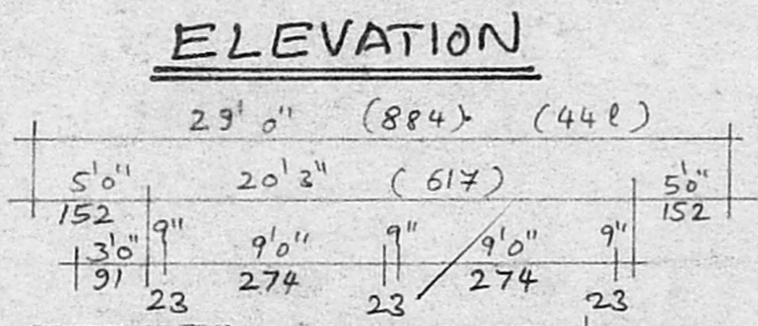 ELEVATION
29'0" (884) (44l)
5'0" 20'3" (617) 5'0"
152 152
3'0" 9" 9'0" 9" 9'0" 9"
91 23 274 23 274 23